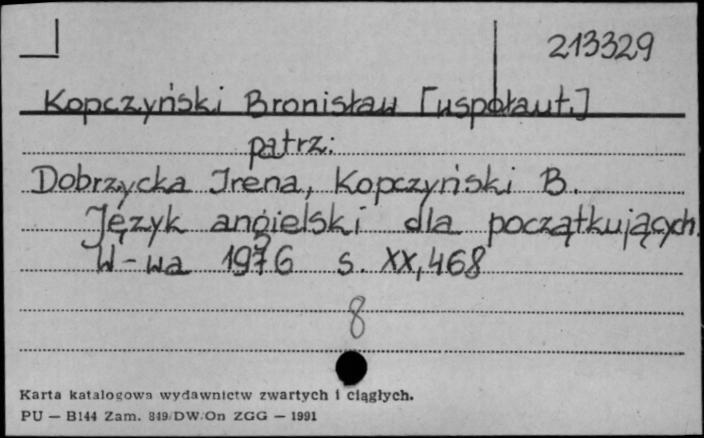 213329
Kopczyński Bronisław [współaut.]
patrz:
Dobrzycka Irena, Kopczyński B.
Język angielski dla początkujących.
W-wa 1976 s. XX, 468
8
Karta katalogowa wydawnictw zwartych i ciągłych.
PU — B144 Zam. 849/DW/On ZGG — 1991